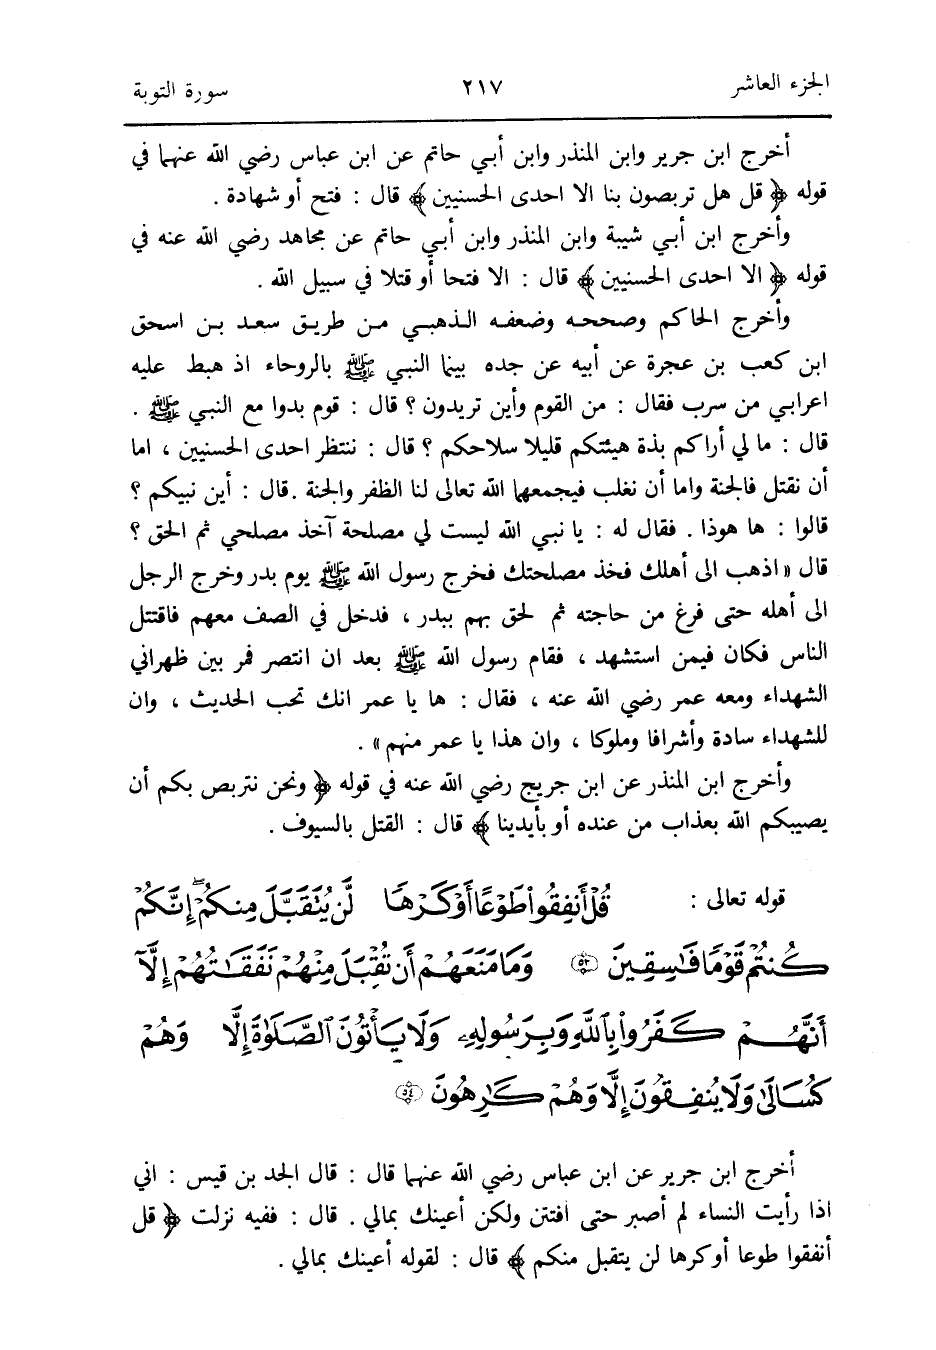 الجزء العاشر ٢١٧ سورة التوبة
أخرج ابن جرير وابن المنذر وابن أبي حاتم عن ابن عباس رضي الله عنهما في
قوله ﴿ قل هل تربصون بنا الا احدى الحسنيين ﴾ قال : فتح أو شهادة .
وأخرج ابن أبي شيبة وابن المنذر وابن أبي حاتم عن مجاهد رضي الله عنه في
قوله ﴿ الا احدى الحسنيين ﴾ قال : الا فتحا أو قتلا في سبيل الله .
وأخرج الحاكم وصححه وضعفه الذهبي من طريق سعد بن اسحق
ابن كعب بن عجرة عن أبيه عن جده بينما النبي ﷺ بالروحاء اذ هبط عليه
اعرابي من سرب فقال : من القوم وأين تريدون ؟ قال : قوم بدوا مع النبي ﷺ .
قال : ما لي أراكم بذة هيئتكم قليلا سلاحكم ؟ قال : ننتظر احدى الحسنيين ، اما
أن نقتل فالجنة واما أن نغلب فيجمعهما الله تعالى لنا الظفر والجنة . قال : أين نبيكم ؟
قالوا : ها هوذا . فقال له : يا نبي الله ليست لي مصلحة آخذ مصلحي ثم الحق ؟
قال « اذهب الى أهلك فخذ مصلحتك فخرج رسول الله ﷺ يوم بدر وخرج الرجل
الى أهله حتى فرغ من حاجته ثم لحق بهم ببدر ، فدخل في الصف معهم فاقتتل
الناس فكان فيمن استشهد ، فقام رسول الله ﷺ بعد ان انتصر فمر بين ظهراني
الشهداء ومعه عمر رضي الله عنه ، فقال : ها يا عمر انك تحب الحديث ، وان
للشهداء سادة وأشرافا وملوكا ، وان هذا يا عمر منهم » .
وأخرج ابن المنذر عن ابن جريج رضي الله عنه في قوله ﴿ ونحن نتربص بكم أن
يصيبكم الله بعذاب من عنده أو بأيدينا ﴾ قال : القتل بالسيوف .
قوله تعالى : قُلْ أَنفِقُوا۟ طَوْعًا أَوْ كَرْهًا لَّن يُتَقَبَّلَ مِنكُمْ ۖ إِنَّكُمْ
كُنتُمْ قَوْمًا فَـٰسِقِينَ ﴿٥٣﴾ وَمَا مَنَعَهُمْ أَن تُقْبَلَ مِنْهُمْ نَفَقَـٰتُهُمْ إِلَّآ
أَنَّهُمْ كَفَرُوا۟ بِٱللَّهِ وَبِرَسُولِهِۦ وَلَا يَأْتُونَ ٱلصَّلَوٰةَ إِلَّا وَهُمْ
كُسَالَىٰ وَلَا يُنفِقُونَ إِلَّا وَهُمْ كَـٰرِهُونَ ﴿٥٤﴾
أخرج ابن جرير عن ابن عباس رضي الله عنهما قال : قال الجد بن قيس : اني
اذا رأيت النساء لم أصبر حتى افتتن ولكن أعينك بمالي . قال : ففيه نزلت ﴿ قل
أنفقوا طوعا أو كرها لن يتقبل منكم ﴾ قال : لقوله أعينك بمالي .